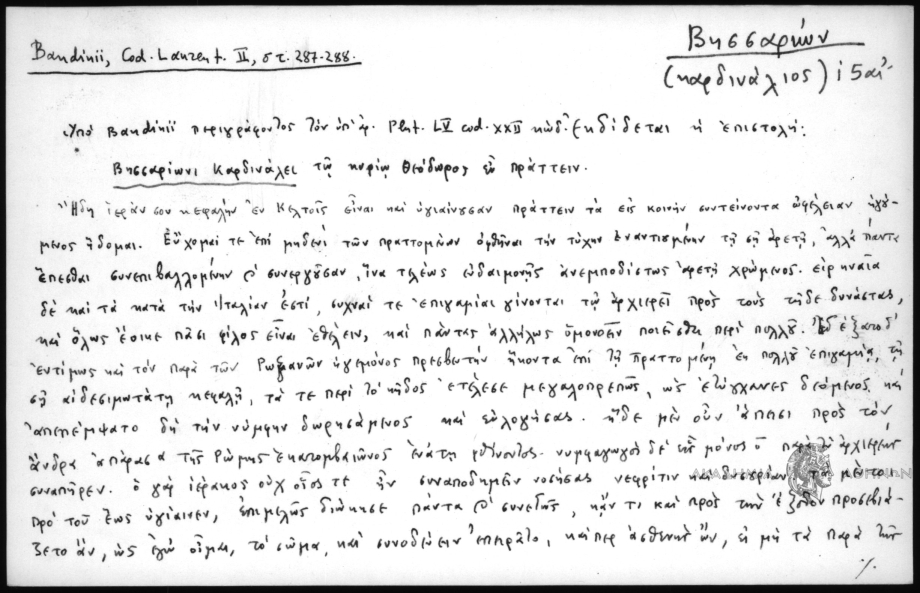 Bandinii, Cod. Laurent. II, στ. 287-288.
Βησσαρίων
(καρδινάλιος) ι5αι
Ὑπὸ Bandinii περιγράφοντος τὸν ὑπ' ἀρ. Plut. LV cod. XXII κώδ. ἐκδίδεται ἡ ἐπιστολή:
Βησσαρίωνι Καρδινάλει τῷ κυρίῳ Θεόδωρος εὖ πράττειν.
Ἤδη ἱεράν σου κεφαλὴν ἐν Κελτοῖς εἶναι καὶ ὑγιαίνουσαν πράττειν τὰ εἰς κοινὴν συντείνοντα ὠφέλειαν ἡγού-
μενος ἥδομαι. Εὔχομαί τε ἐπὶ μηδενὶ τῶν πραττομένων ὀφθῆναι τὴν τύχην ἐναντιουμένην τῇ σῇ ἀρετῇ, ἀλλὰ πάντα
ἕπεσθαι συνεπιβαλλομένην καὶ συνεργοῦσαν, ἵνα τελέως εὐδαιμονῇς ἀνεμποδίστως ἀρετῇ χρώμενος. εἰρηναῖα
δὲ καὶ τὰ κατὰ τὴν Ἰταλίαν ἐστί, συχναί τε ἐπιγαμίαι γίνονται τῷ ἀρχιερεῖ πρὸς τοὺς τῇδε δυνάστας,
καὶ ὅλως ἔοικε πᾶσι φίλος εἶναι ἐθέλειν, καὶ πάντας ἀλλήλοις ὁμονοεῖν ποιεῖσθαι περὶ πολλοῦ. Ἐδέξατο δ'
ἐντίμως καὶ τὸν παρὰ τῶν Ῥωξανῶν ἡγεμόνος πρεσβευτὴν ἥκοντα ἐπὶ τῇ πραττομένῃ ἐκ πολλοῦ ἐπιγαμίᾳ, τῇ
σῇ αἰδεσιμωτάτῃ κεφαλῇ, τά τε περὶ τὸ κῆδος ἐτέλεσε μεγαλοπρεπῶς, ὡς ἐτύγχανες δεόμενος, καὶ
ἀπεπέμψατο δὴ τὴν νύμφην δωρησάμενος καὶ εὐλογήσας. ἥδε μὲν οὖν ἄπεισι πρὸς τὸν
ἄνδρα ἀπάρασα τῆς Ῥώμης ἑκατομβαιῶνος ἐνάτῃ φθίνοντος. νυμφαγωγὸς δὲ εἷς μόνος ὁ παρὰ τοῦ ἀρχιερέως
συναπῆρεν. ὁ γὰρ ἱέρακος οὐχ οἷός τε ἦν συναποδημεῖν νοσήσας νεφρῖτιν καὶ δυσουρίαν. τὰ μέντοι
πρὸ τοῦ ἕως ὑγίαινεν, ἐπιμελῶς διῴκησε πάντα καὶ συνετῶς, κἄν τι καὶ πρὸς τὴν ἔξοδον προσεβιά-
ζετο ἄν, ὡς ἐγὼ οἶμαι, τὸ σῶμα, καὶ συνοδεύειν ἐπειρᾶτο, καίπερ ἀσθενὴς ὤν, εἰ μὴ τὰ παρὰ τῆς
./.
ΑΚΑΔΗΜΙΑ ΑΘΗΝΩΝ